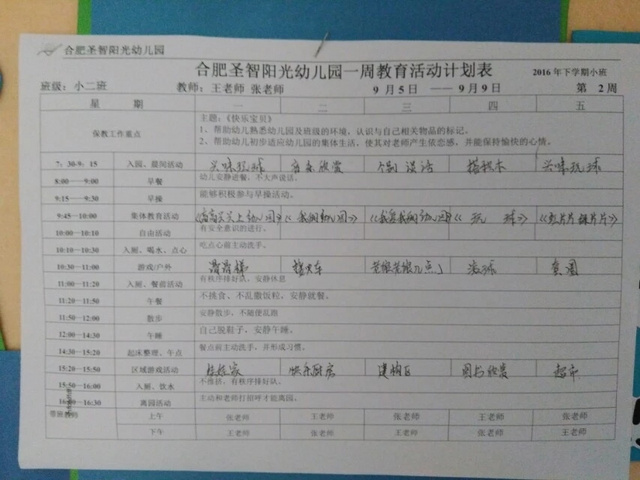 合肥圣智阳光幼儿园
合肥圣智阳光幼儿园一周教育活动计划表
2016年下学期小班
班级：小二班 教师：王老师 张老师 9月5日 ——9月9日 第 2 周
星 期 一 二 三 四 五
保教工作重点
主题：《快乐宝贝》
1、帮助幼儿熟悉幼儿园及班级的环境，认识与自己相关物品的标记。
2、帮助幼儿初步适应幼儿园的集体生活，使其对老师产生依恋感，并能保持愉快的心情。
7：30-9：15 入园、晨间活动 兴味玩球 音乐欣赏 个别谈话 搭积木 兴味玩球
8:00——9:00 早餐 幼儿安静进餐，不大声说话。
9:15——9:30 早操 能够积极参与早操活动。
9:45——10:00 集体教育活动 《高高兴兴上幼儿园》 《我的幼儿园》 《我爱我的幼儿园》 《玩 球》
10:00——10:10 自由活动 有安全意识的进行。
10:10——10:30 入厕、喝水、点心 吃点心前主动洗手。
10:30——11:00 游戏/户外 开火车 老狼老狼几点了
11:00——11:20 入厕、餐前活动 有秩序排好队，安静休息
11:20——11:50 午餐 不挑食、不乱撒饭粒，安静就餐。
11:50——12:00 散步 安静散步，不随便乱跑
12:00——14:30 午睡 自己脱鞋子，安静午睡。
14:30——15:20 起床整理、午点 餐点前主动洗手，并形成习惯。
15:20——15:50 区域游戏活动 娃娃家 快乐厨房 建构区 图书欣赏 超市
15:50——16:00 入厕、饮水 不推挤，有秩序排好队。
16:00——16:30 离园活动 主动和老师打招呼才能离园。
带班教师 上午 张老师 王老师 张老师 王老师 张老师
下午 王老师 张老师 王老师 张老师 王老师